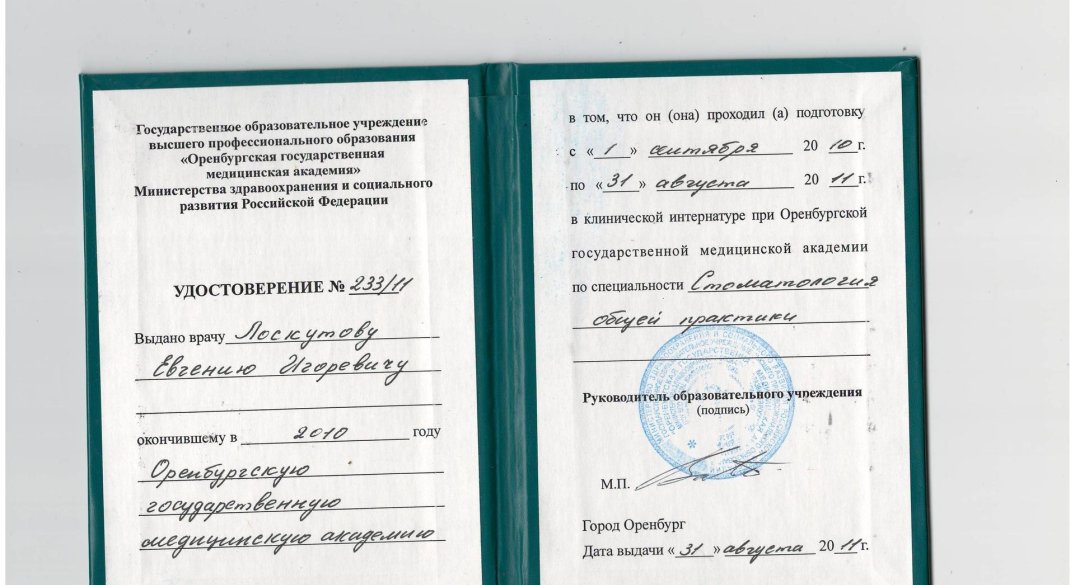 Государственное образовательное учреждение
высшего профессионального образования
«Оренбургская государственная
медицинская академия»
Министерства здравоохранения и социального
развития Российской Федерации
УДОСТОВЕРЕНИЕ № 233/11
Выдано врачу Лоскутову
Евгению Игоревичу
окончившему в 2010 году
Оренбургскую
государственную
медицинскую академию
в том, что он (она) проходил (а) подготовку
с «1» сентября 2010 г.
по «31» августа 2011 г.
в клинической интернатуре при Оренбургской
государственной медицинской академии
по специальности Стоматология
общей практики
Руководитель образовательного учреждения
(подпись)
М.П.
Город Оренбург
Дата выдачи «31» августа 2011 г.